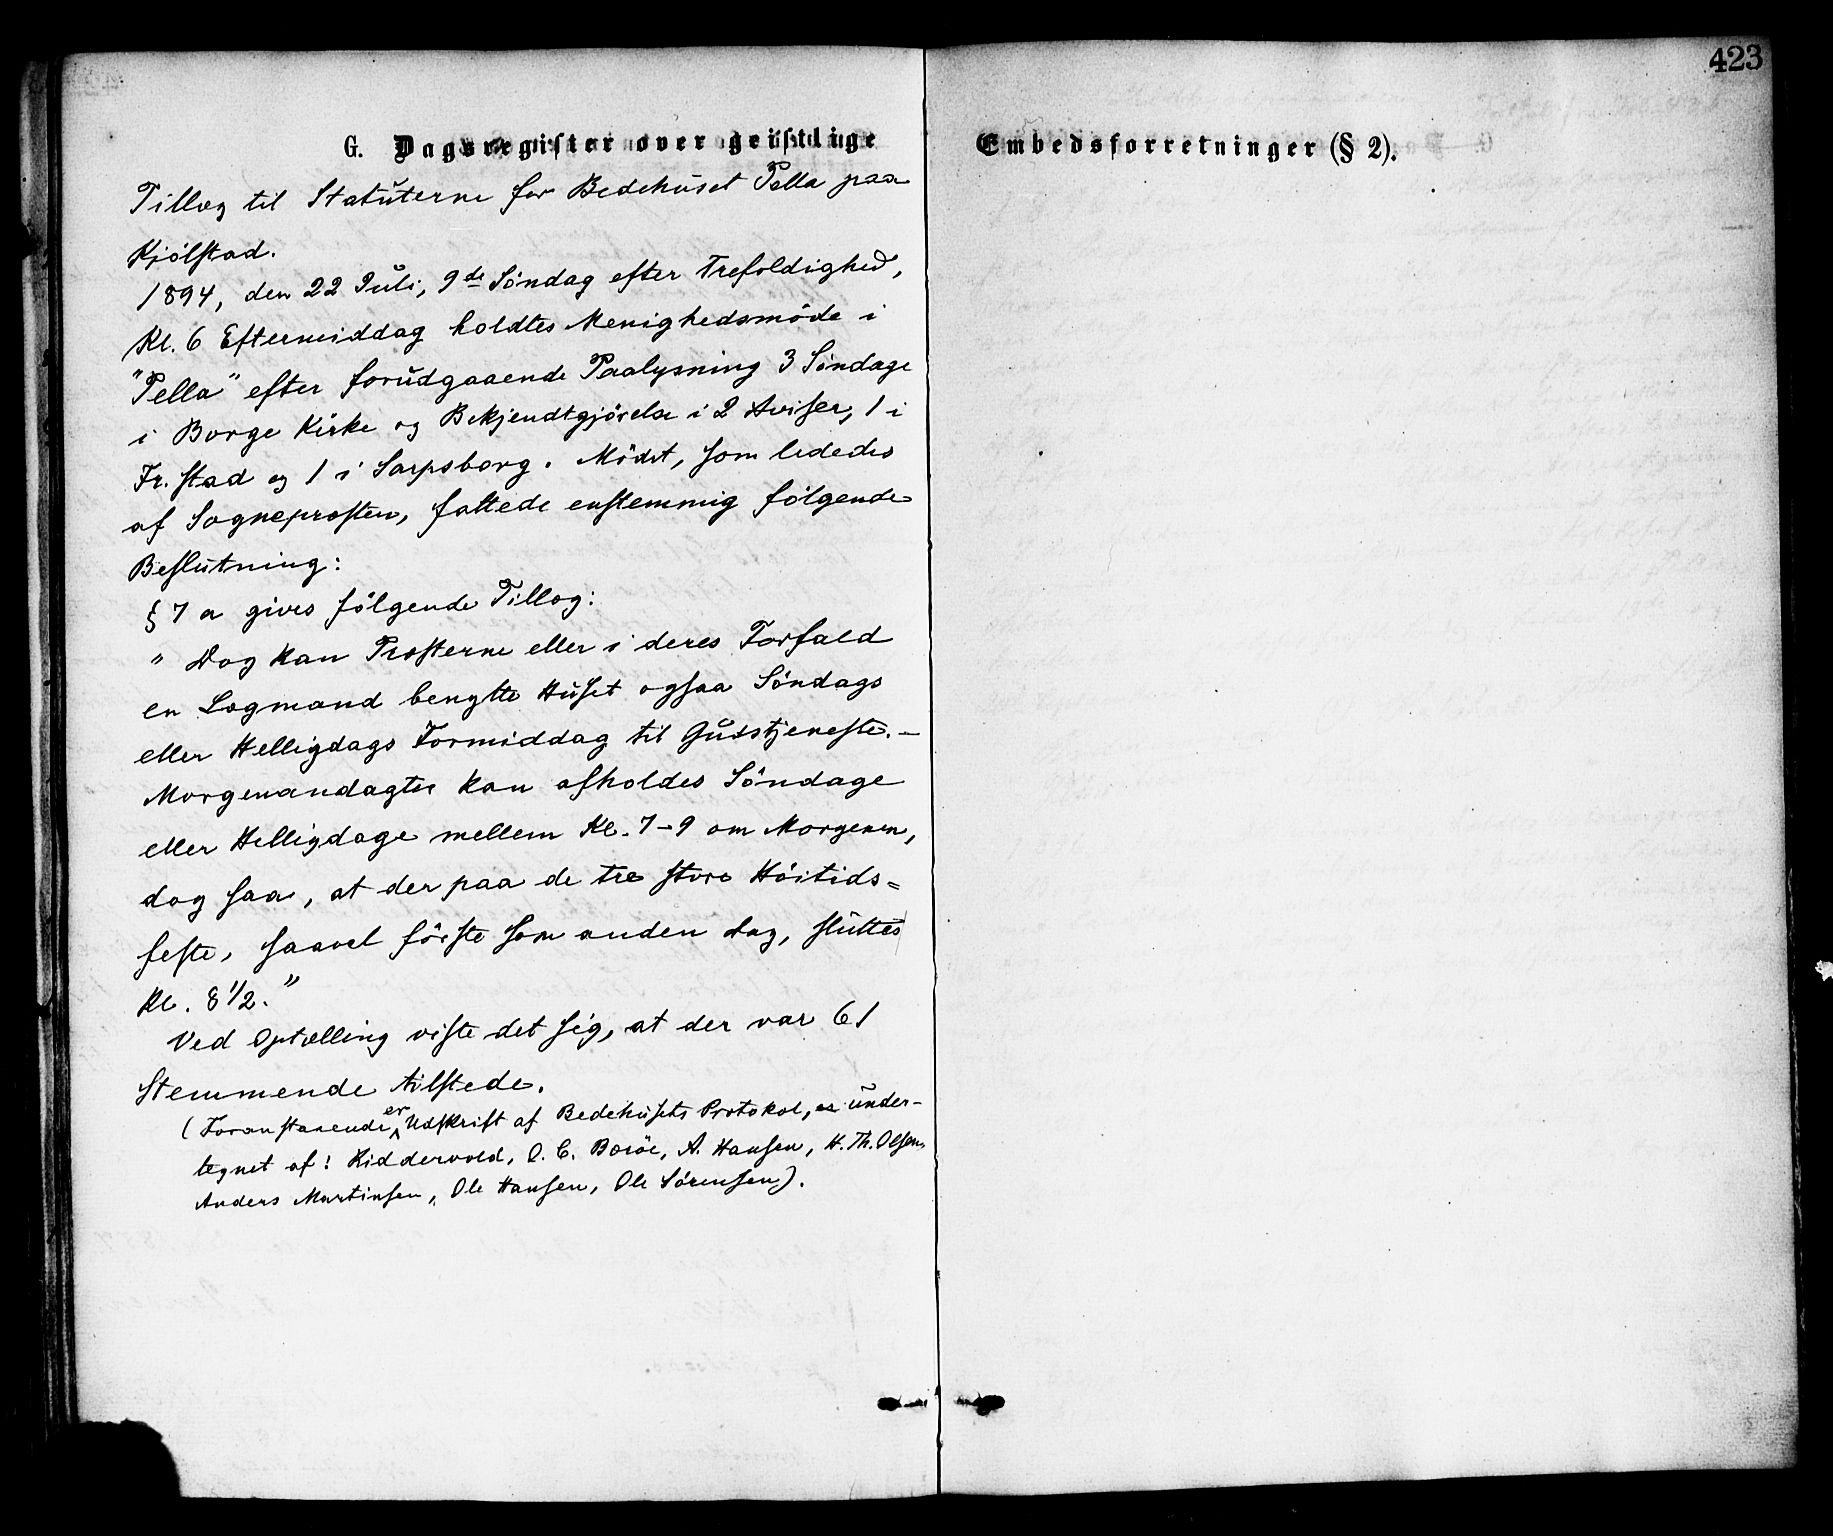 423
G. Dagsregister over geistlige Embedsforretninger (§ 2).
Tillæg til Statuterne for Bedehuset Pella paa
Kjølstad.
1894, den 22 Juli, 9de Søndag efter Trefoldighed,
Kl. 6 Eftermiddag holdtes Menighedsmøde i
"Pella" efter forudgaaende Paalysning 3 Søndage
i Borge Kirke og Bekjendtgjørelse i 2 Aviser, 1 i
Fr.stad og 1 i Sarpsborg. Mødet, som lededes
af Sognepresten, fattede enstemmig følgende
Beslutning:
§ 7 a gives følgende Tillæg:
" Dog kan Presterne eller i deres Forfald
en Lægmand benytte Huset ogsaa Søndags
eller Helligdags Formiddag til Gudstjeneste. –
Morgenandagter kan afholdes Søndage
eller Helligdage mellem Kl. 7–9 om Morgenen,
dog saa, at der paa de tre store Høitids=
feste, saavel første som anden Dag, sluttes
Kl. 8 1/2."
Ved Optælling viste det sig, at der var 61
Stemmende tilstede.
(Foranstaaende er Udskrift af Bedehusets Protokol, er under-
tegnet af: Riddervold, O. C. Borøe, A. Hansen, H. Th. Olsen,
Anders Martinsen, Ole Hansen, Ole Sørensen).